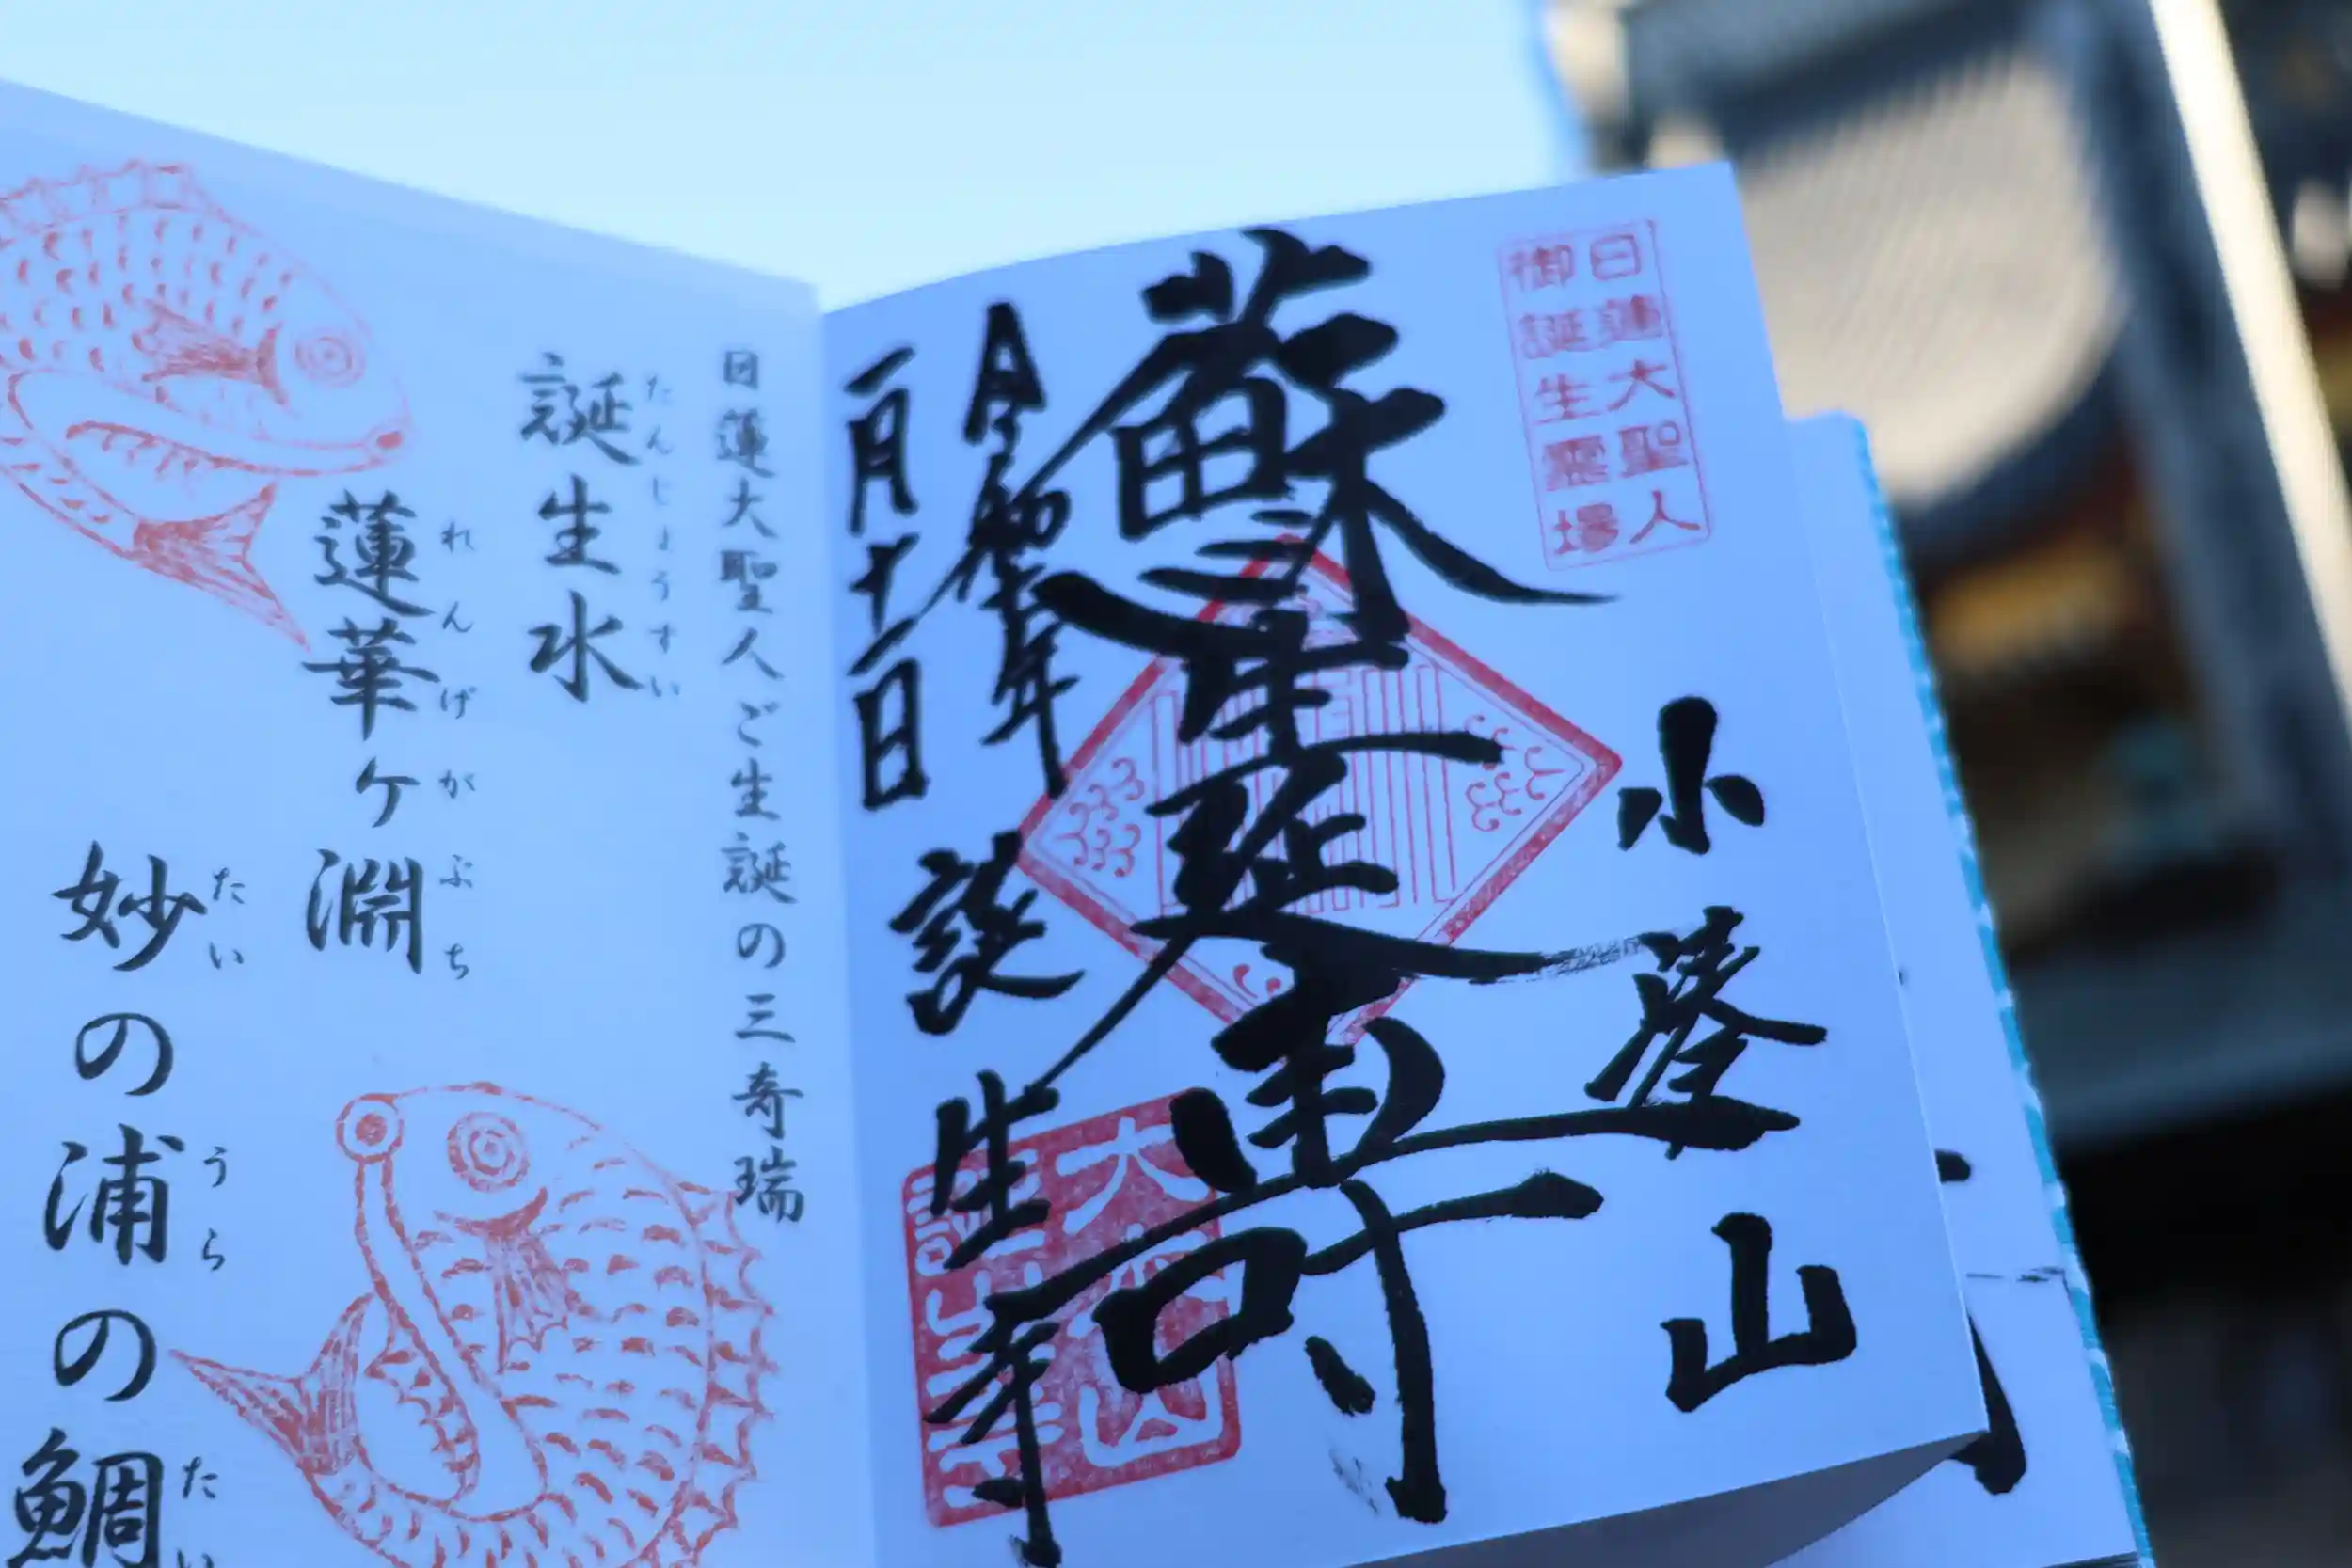 日蓮大聖人
御誕生霊場
小湊山
蘇生延壽
一月十一日
誕生寺
大本山
誕生寺
日蓮大聖人ご生誕の三奇瑞
たんじょうすい
誕生水
れんげがぶち
蓮華ケ淵
たい うら たい
妙の浦の鯛